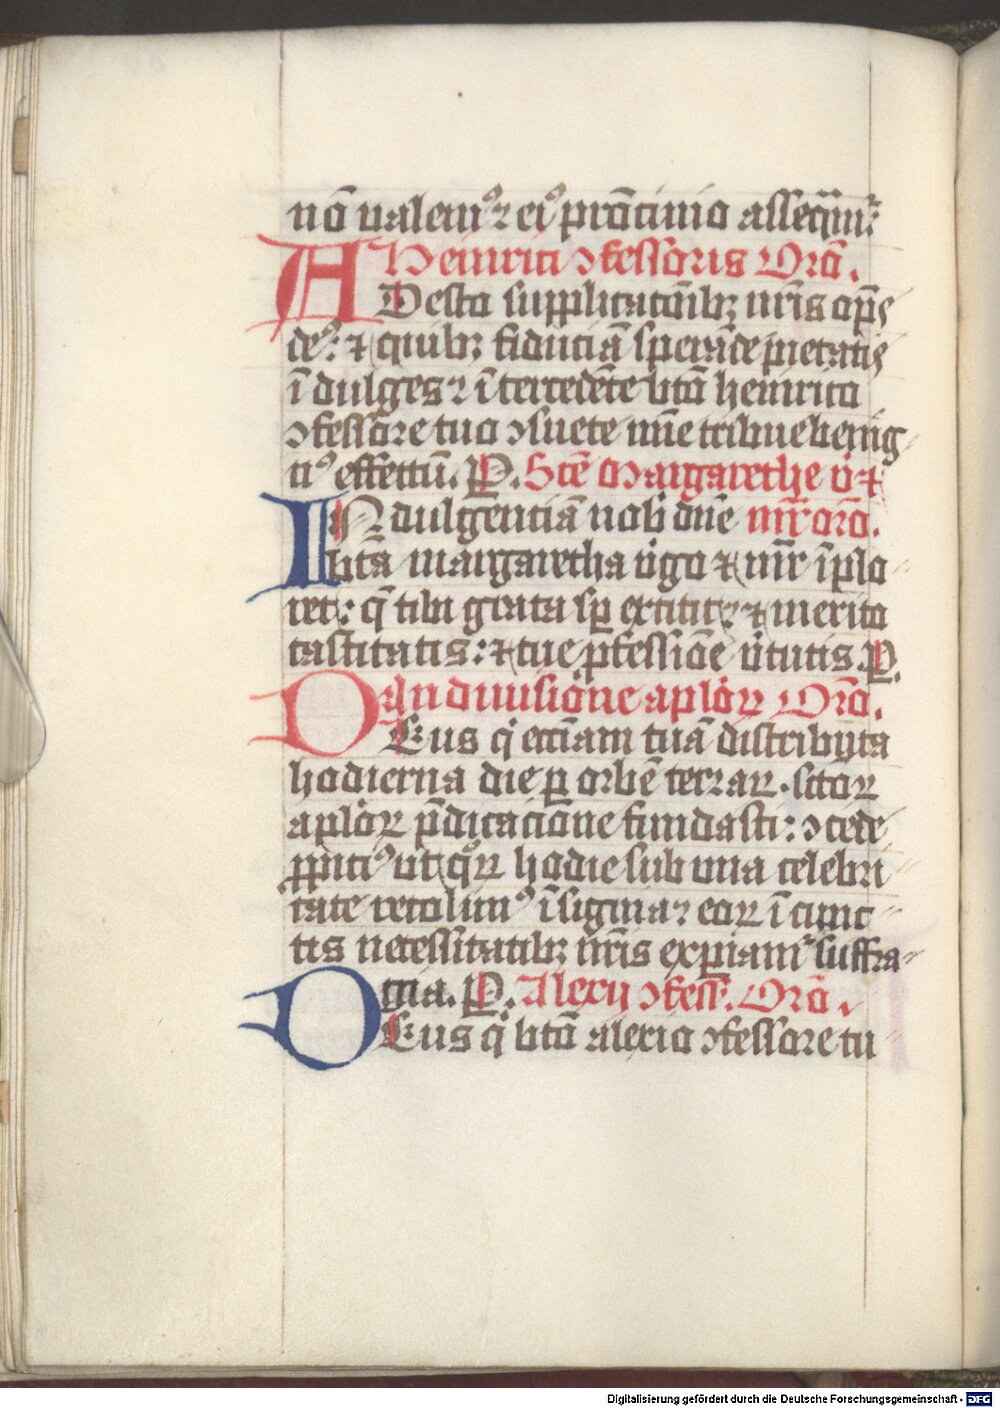 nō valem⁹ ꝛ ei⁹ pat̄rocinio asseq̄m̄ᷣ
Heinrici ꝯfessoris Orō.
ADesto supplicatōnibꝫ nr̄is op̄s
de⁹: ⁊ quibꝫ fiduciā sperāde pietatis
īdulges ꝛ ītercedēte btō heinrico
ꝯfessore tuo ꝯsuete mīe tribue benig
ti⁹ effectū. P. Scē Margarethe v̓ ⁊
INdulgentiā nob̄ dn̄e mr̄ orō.
btā margaretha v̓go ⁊ mr̄ īplo
ret: q̄ tibi grata sp̄ extitit ꝛ ⁊ merito
castitatis: ⁊ tue ꝓfessiōe v̓tutis. P.
In diuisione aplōꝝ Orō.
DEus q̄ eccīam tuā distributa
hodierna die ꝑ orbē terraꝝ. sctōꝝ
aplōꝝ p̄dicaciōne fundasti: ꝯcede
ꝓpici⁹ ut qͦꝝ hodie sub una celebri
tate recolim⁹ īsignia ꝛ eoꝝ ī cunc
tis necessitatibꝫ nr̄is expiamᷣ suffra
gia. P. Alexij ꝯfess. Orō.
DEus q̄ btō alexio ꝯfessore tu
Digitalisierung gefördert durch die Deutsche Forschungsgemeinschaft - DFG